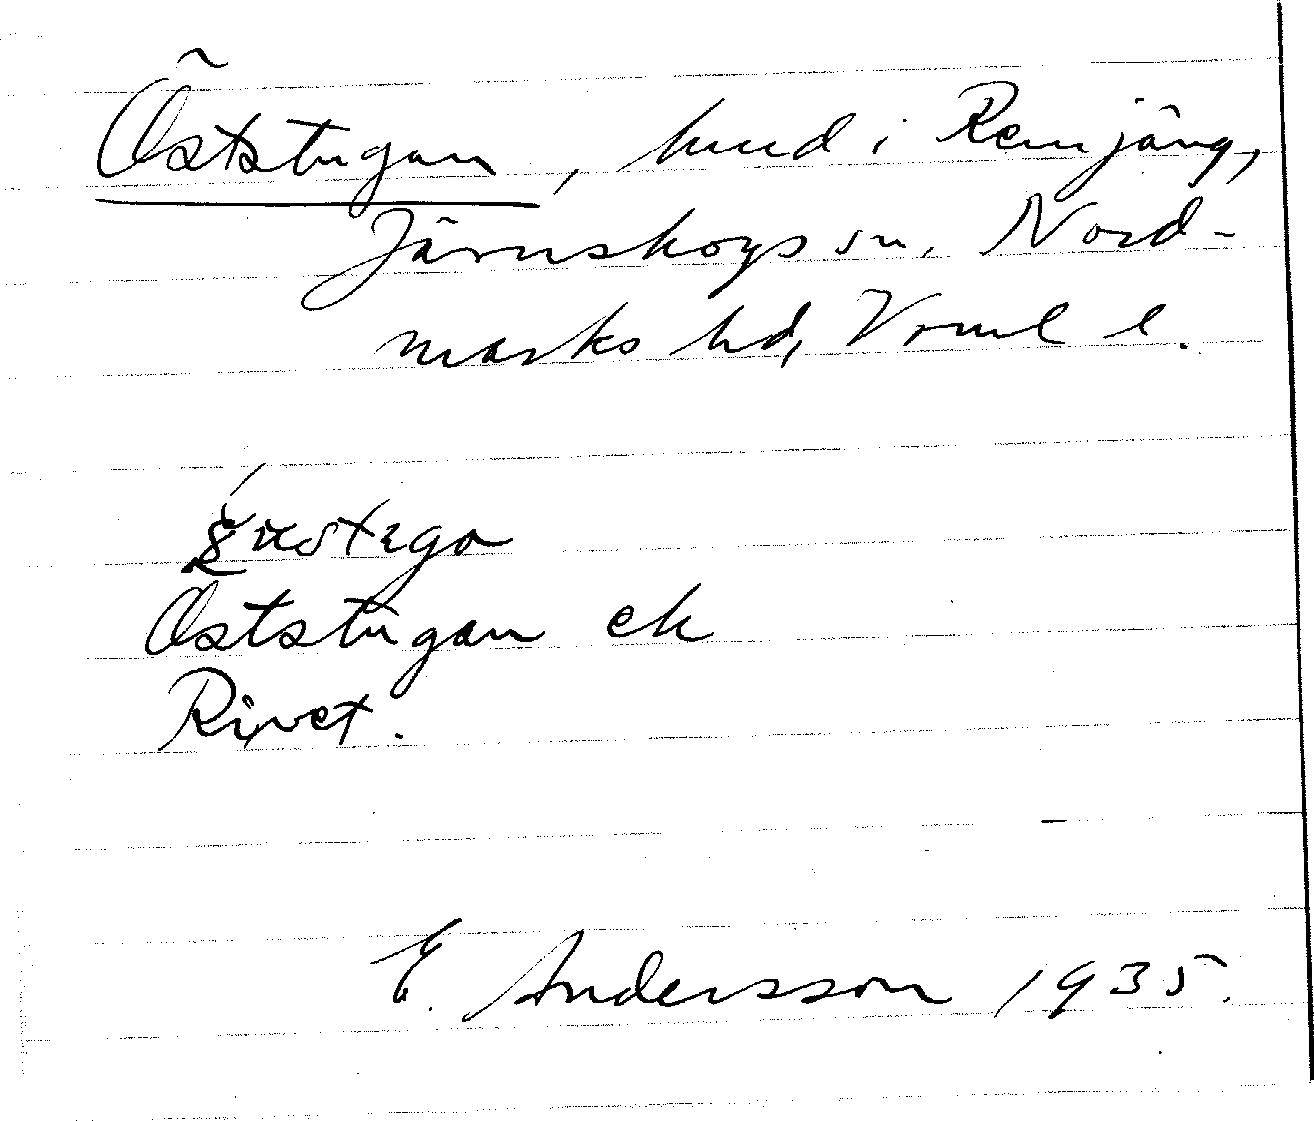 Öststugan, hmd i Remjäng,
Järnskogs sn, Nord-
marks hd, Vrml l.
Öststugan ek
Rivet.
E. Andersson 1935.